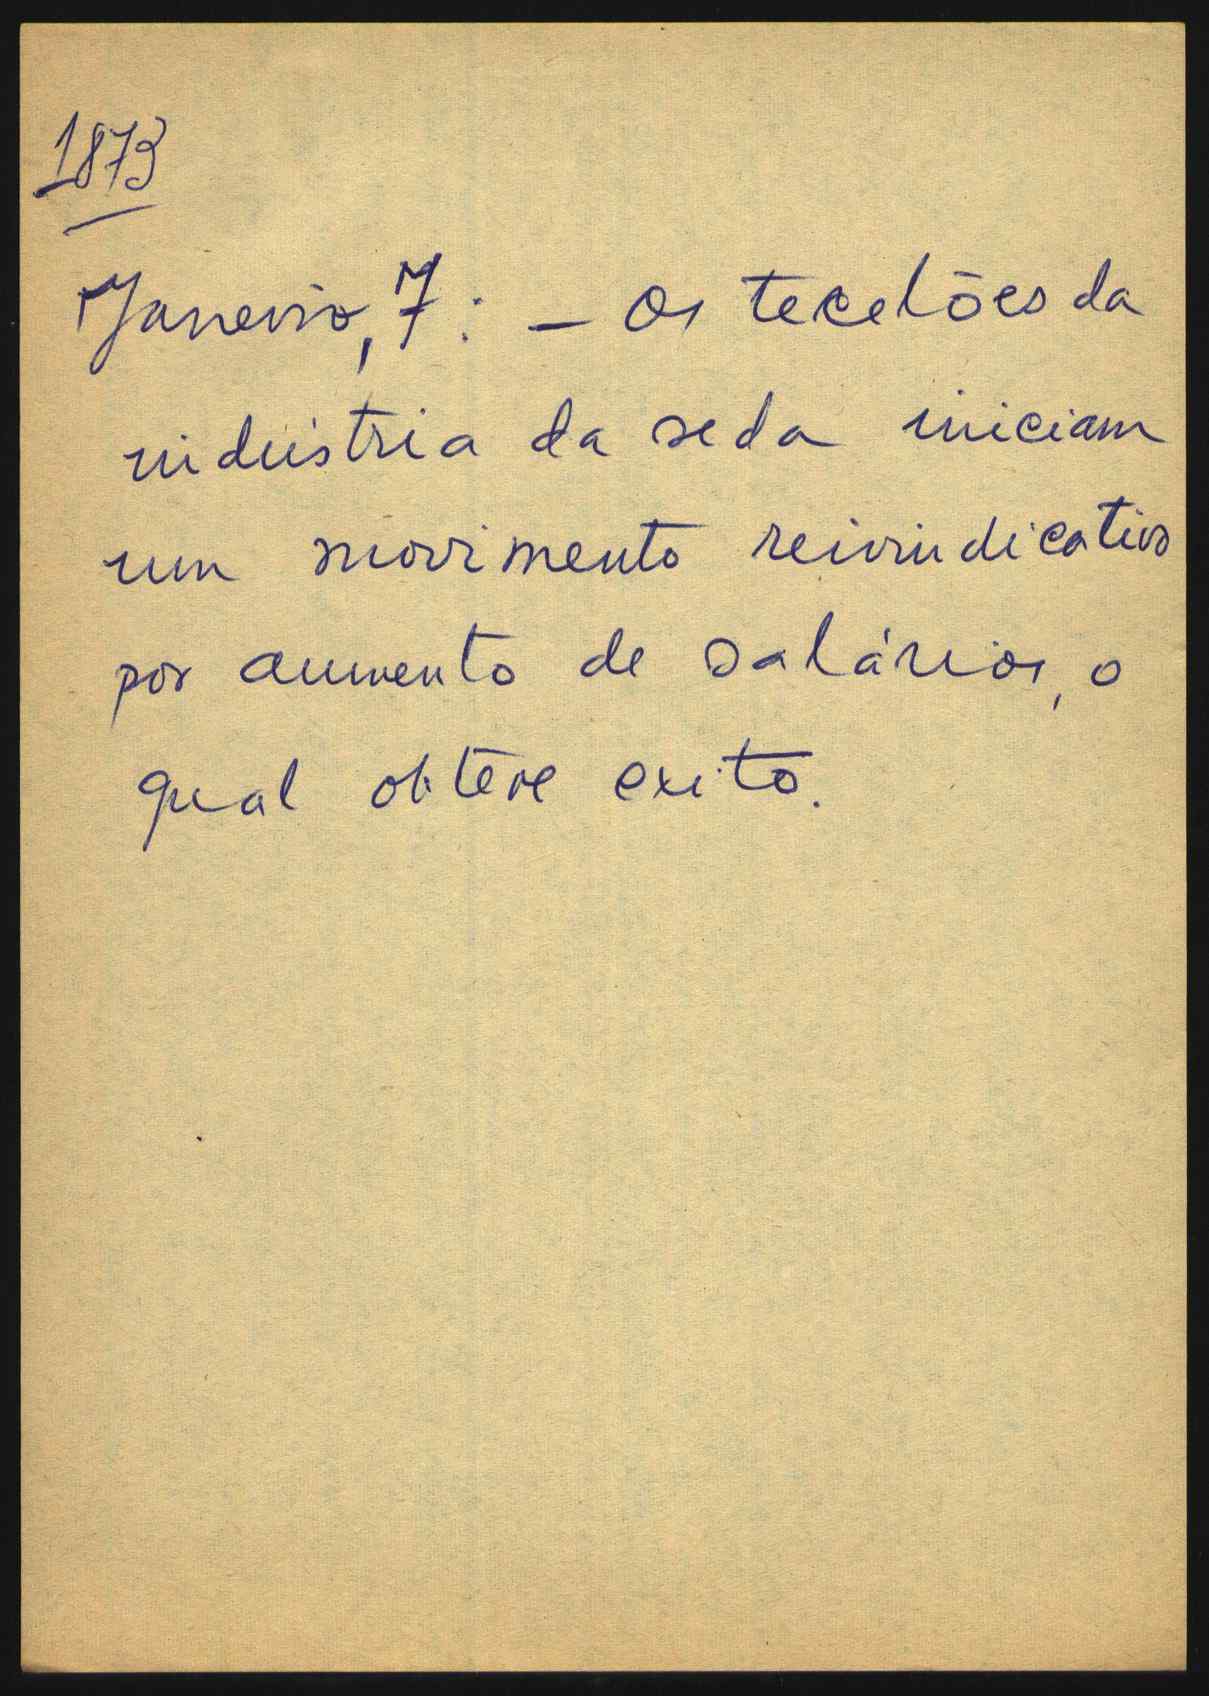 1873
Janeiro, 7: — Os tecelões da
indústria da seda iniciam
um movimento reivindicativo
por aumento de salários, o
qual obteve exito.